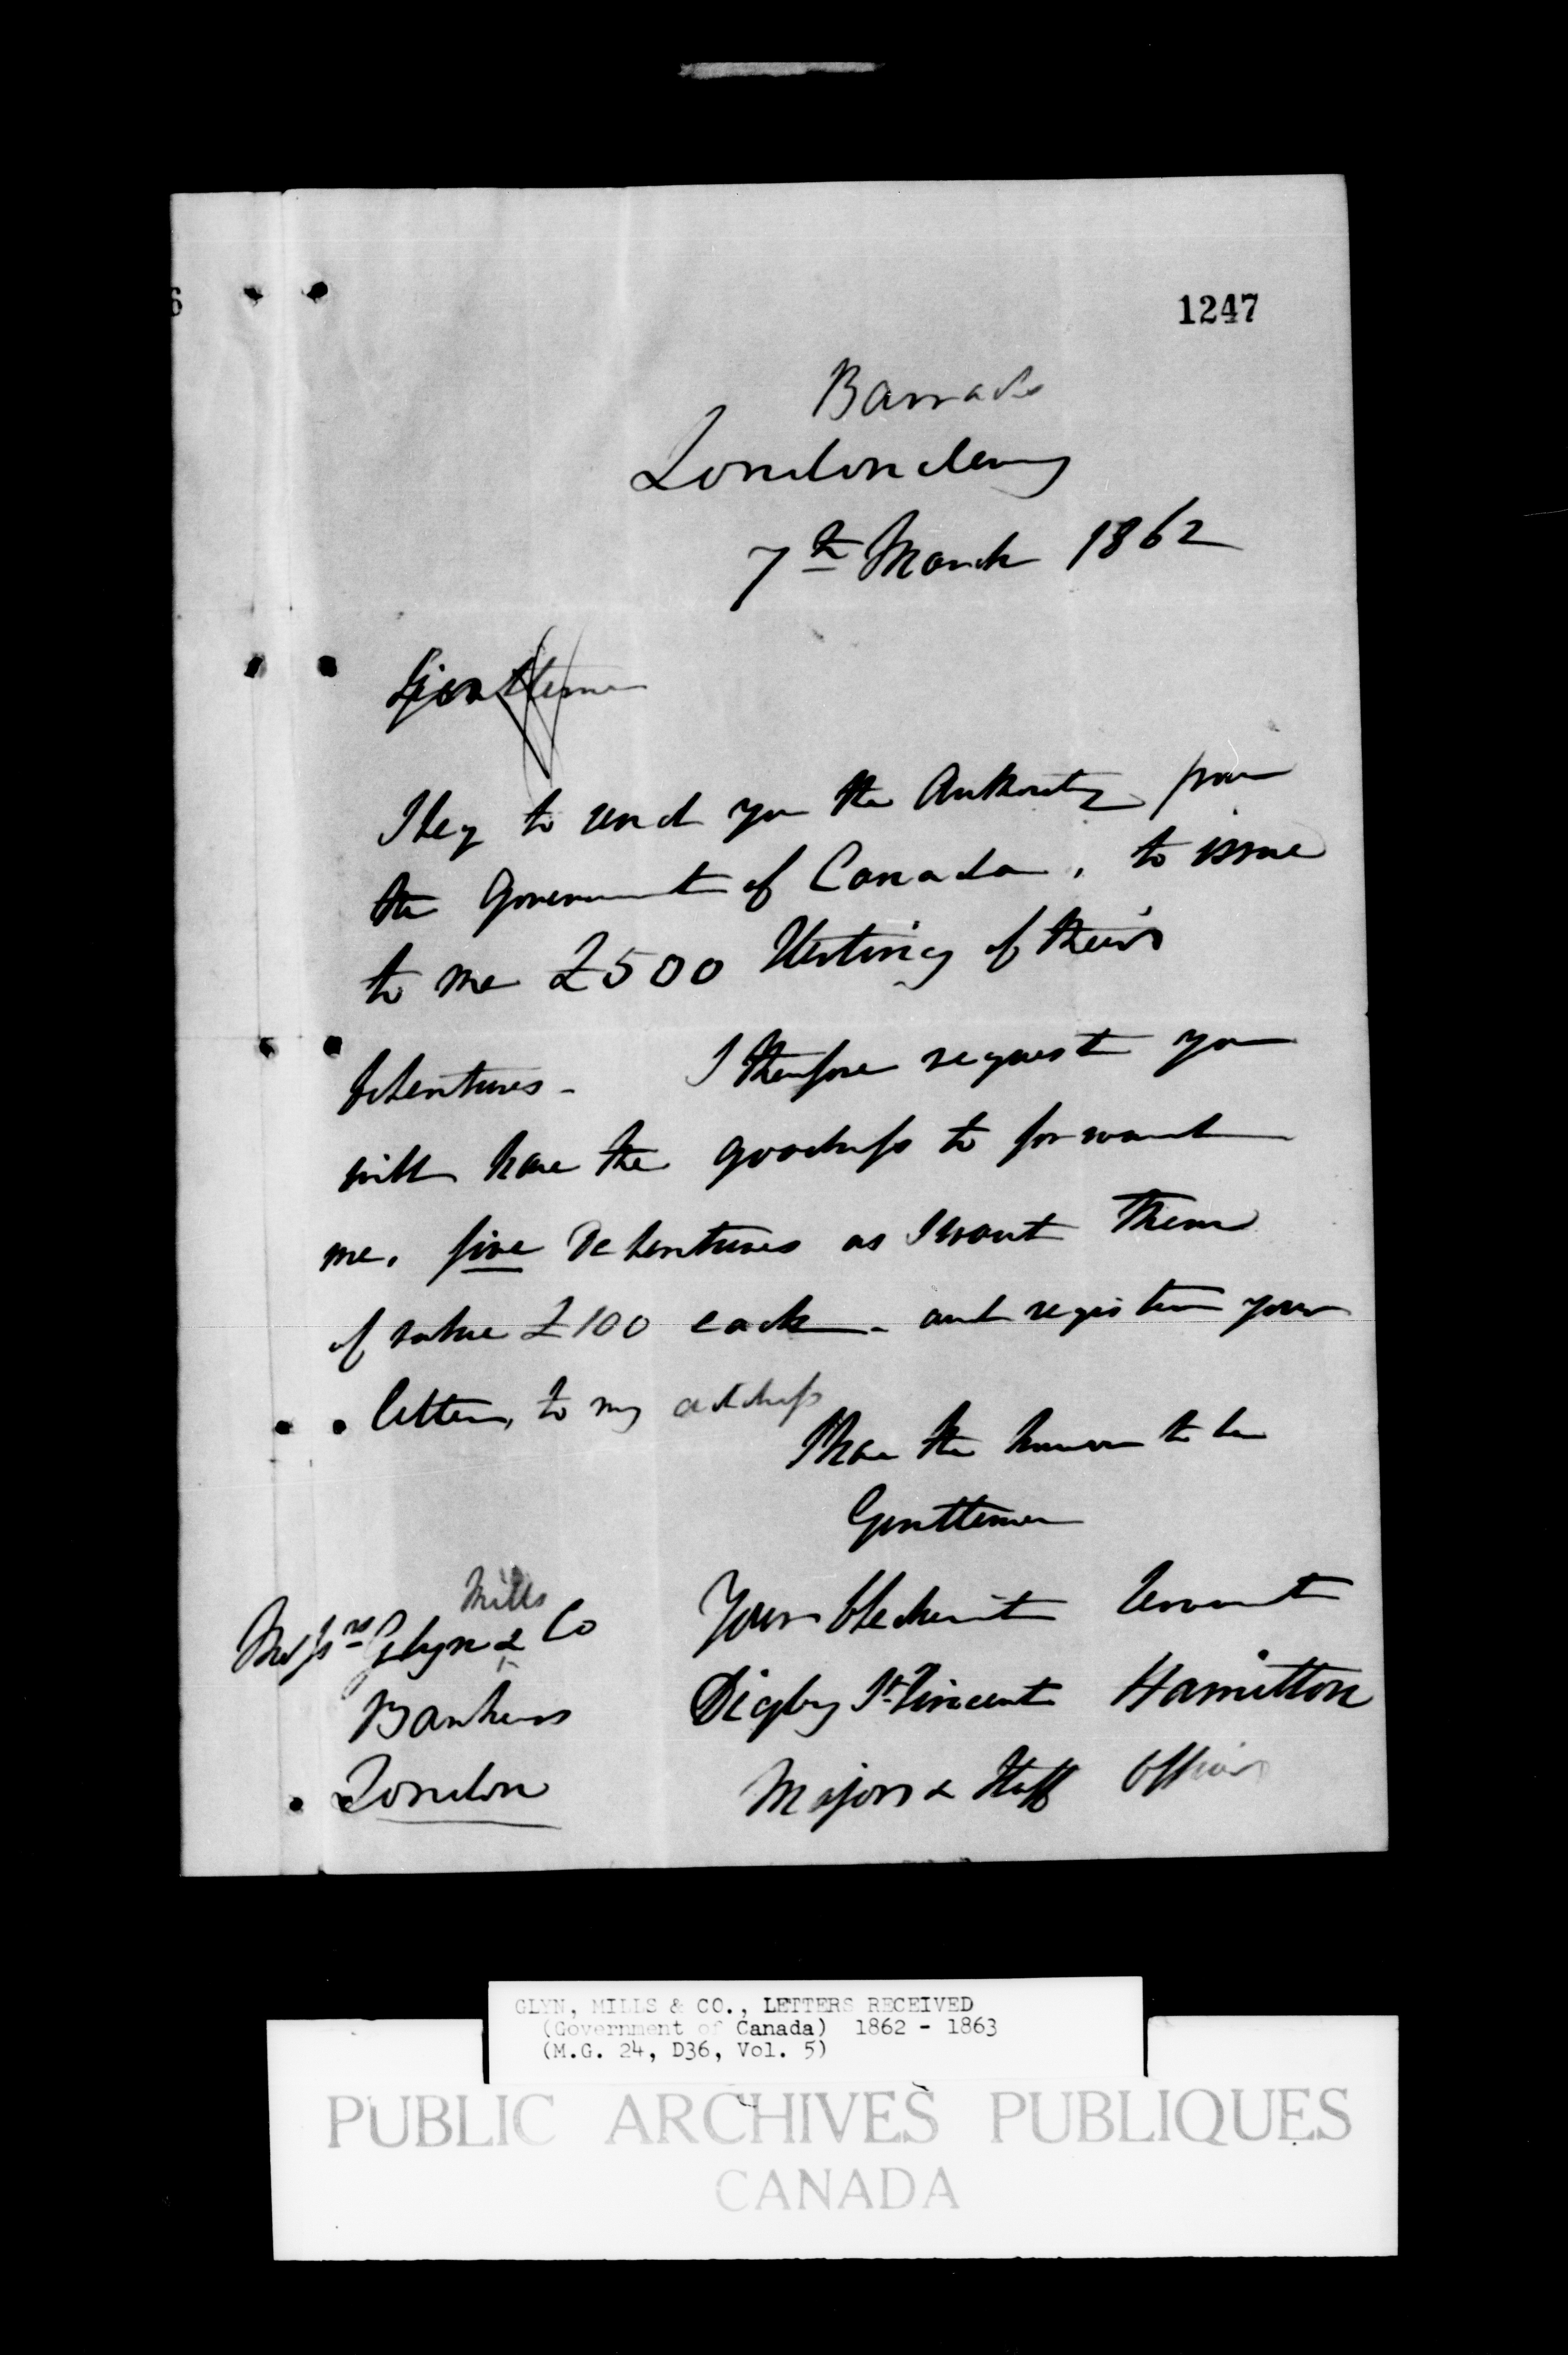 1247
Barracks
Londonderry
7th March 1862
Gentlemen
I beg to send you the Authority from
the Government of Canada, to issue
to me £500 Sterling of their
Debentures - I therefore request you
will have the goodness to forward
me, five Debentures as I want them
of value £100 each - and register your
letter, to my address
I have the honor to be
Gentlemen
Your Obedient Servant
Digby St. Vincent Hamilton
Major & Staff Officer
Messrs Glyn Mills & Co
Bankers
London
GLYN, MILLS & CO., LETTERS RECEIVED
(Government of Canada) 1862 - 1863
(M.G. 24, D36, Vol. 5)
PUBLIC ARCHIVES PUBLIQUES
CANADA